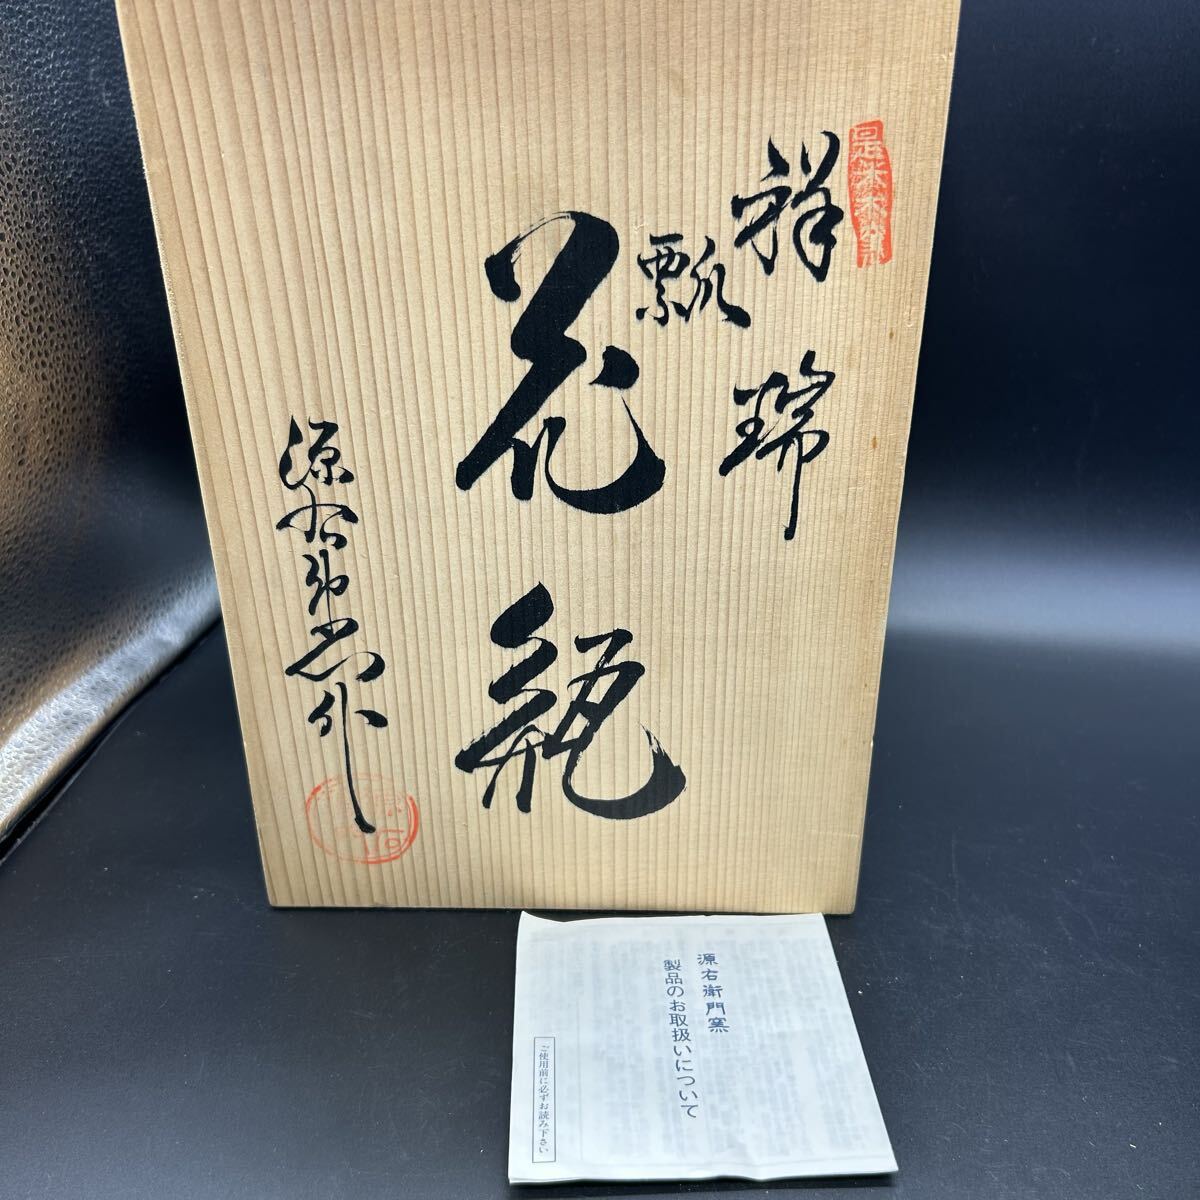 祥瑞
瓢
花瓶
源右衛門作
源右衛門窯
製品のお取扱いについて
ご使用前に必ずお読み下さい